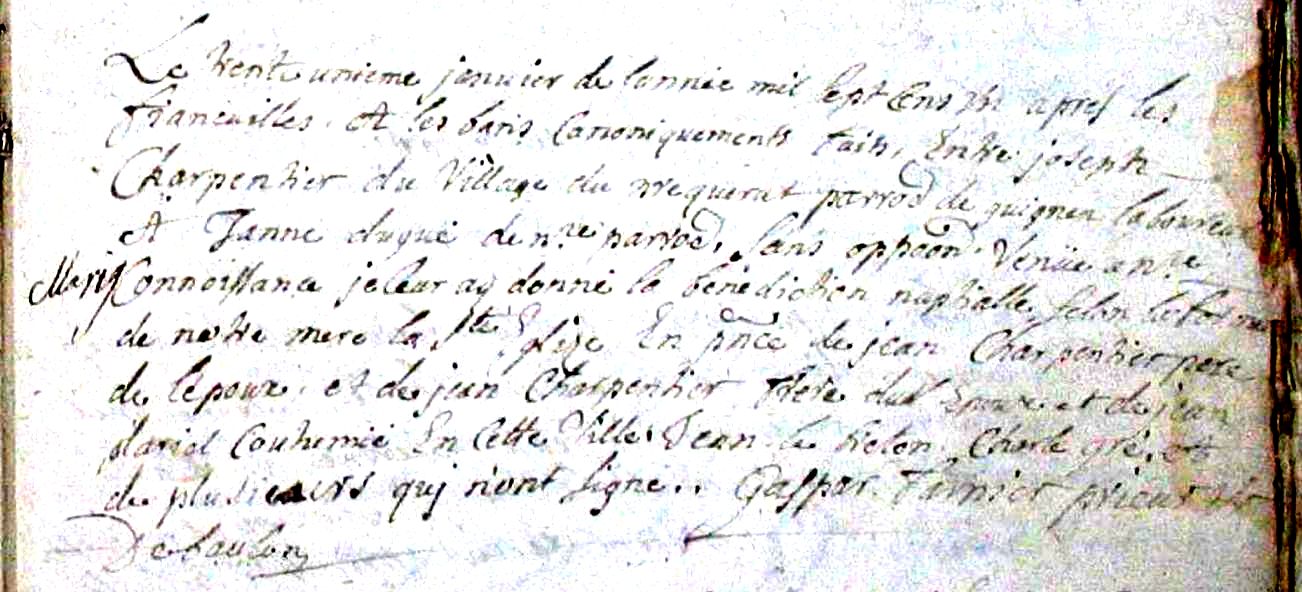 Le trent unieme janvier de lannée mil sept cens apres les
fiancailles. et les bans Canoniquements faits, Entre joseph
Charpentier du Village du parrod de guignen laboureur
et Janne dugué de nre parrod, sans oppoon. Venüe a nre
Mariage Connoissance je leur ay donné la bénédiction nuptialle selon la forme
de notre mere la Ste Eglize En pnce de jean Charpentier pere
de lepoux. et de jean Charpentier frere dud Epoux et de jean
En Cette Ville. Jean le Charle gré, et
de plusieurs quj n'ont signe.. Gaspar prieur
De baulon